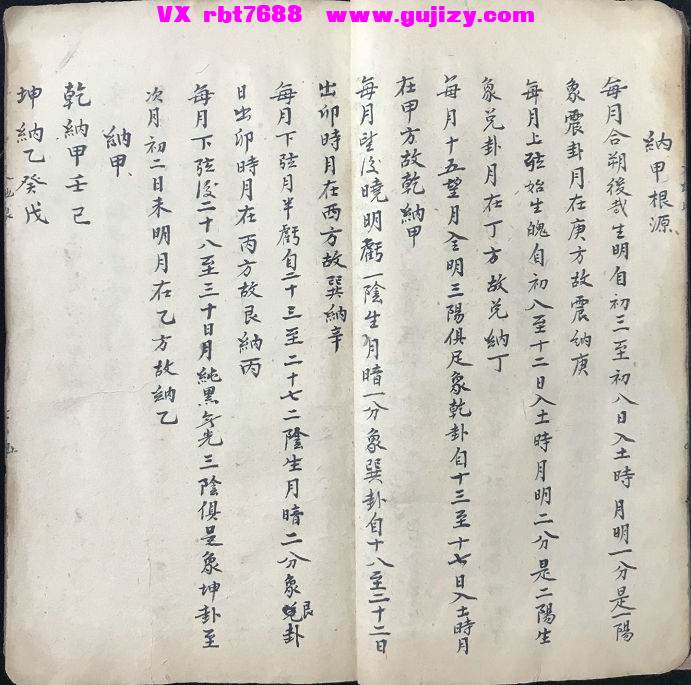 VX rbt7688 www.gujizy.com
納甲根源
每月合朔後哉生明自初三至初八日入土時月明一分是一陽
象震卦月在庚方故震納庚
每月上弦始生魄自初八至十二日入土時月明二分是二陽生
象兌卦月在丁方故兌納丁
每月十五望月全明三陽俱足象乾卦自十三至十七日入土時月
在甲方故乾納甲
每月望後曉明虧一陰生月暗一分象巽卦自十八至二十二日
出卯時月在西方故巽納辛
每月下弦月半虧自二十三至二十七二陰生月暗二分象艮卦
日出卯時月在丙方故艮納丙
每月下弦後二十八至三十日月純黑無光三陰俱是象坤卦至
次月初二日未明月在乙方故納乙
納甲
乾納甲壬己
坤納乙癸戊